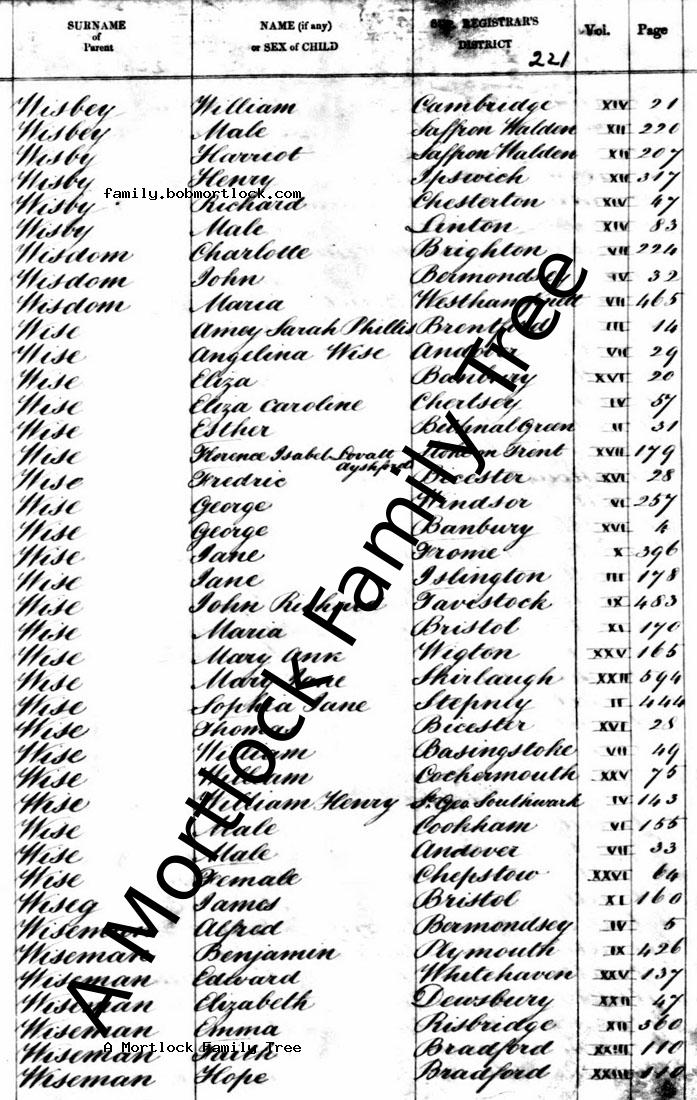 SURNAME of Parent NAME (if any) or SEX of CHILD SUP. REGISTRAR'S DISTRICT Vol. Page
221
Wisbey William Cambridge XIV 21
Wisbey Male Saffron Walden XII 220
Wisby Harriot Saffron Walden XII 207
Wisby Henry Ipswich XII 317
family.bobmortlock.com
Wisby Richard Chesterton XIV 47
Wisby Male Linton XIV 83
Wisdom Charlotte Brighton VII 224
Wisdom John Bermondsey IV 32
Wisdom Maria Westhampnett VII 465
Wise Amey Sarah Phillis Brentford III 14
Wise Angelina Wise Andover VII 29
Wise Eliza Banbury XVI 20
Wise Eliza Caroline Chertsey IV 57
Wise Esther Bethnal Green II 31
Wise Florence Isabel Lovatt Ayshford Stoke on Trent XVII 179
Wise Fredric Bicester XVI 28
Wise George Windsor VI 257
Wise George Banbury XVI 4
Wise Jane Frome X 396
Wise Jane Islington III 178
Wise John Tavistock IX 483
Wise Maria Bristol XI 170
Wise Mary Ann Wigton XXV 165
Wise Mary Jane Skirlaugh XXII 594
Wise Sophia Jane Stepney II 444
Wise Thomas Bicester XVI 28
Wise William Basingstoke VII 49
Wise William Cockermouth XXV 75
Wise William Henry St Geo Southwark IV 143
Wise Male Cookham VI 155
Wise Male Andover VII 33
Wise Female Chepstow XXVI 64
Wiseg James Bristol XI 160
Wiseman Alfred Bermondsey IV 5
Wiseman Benjamin Plymouth IX 426
Wiseman Edward Whitehaven XXV 137
Wiseman Elizabeth Dewsbury XXII 47
Wiseman Emma Risbridge XII 360
A Mortlock Family Tree
Wiseman Bradford XXIII 110
Wiseman Hope Bradford XXIII 110
A Mortlock Family Tree